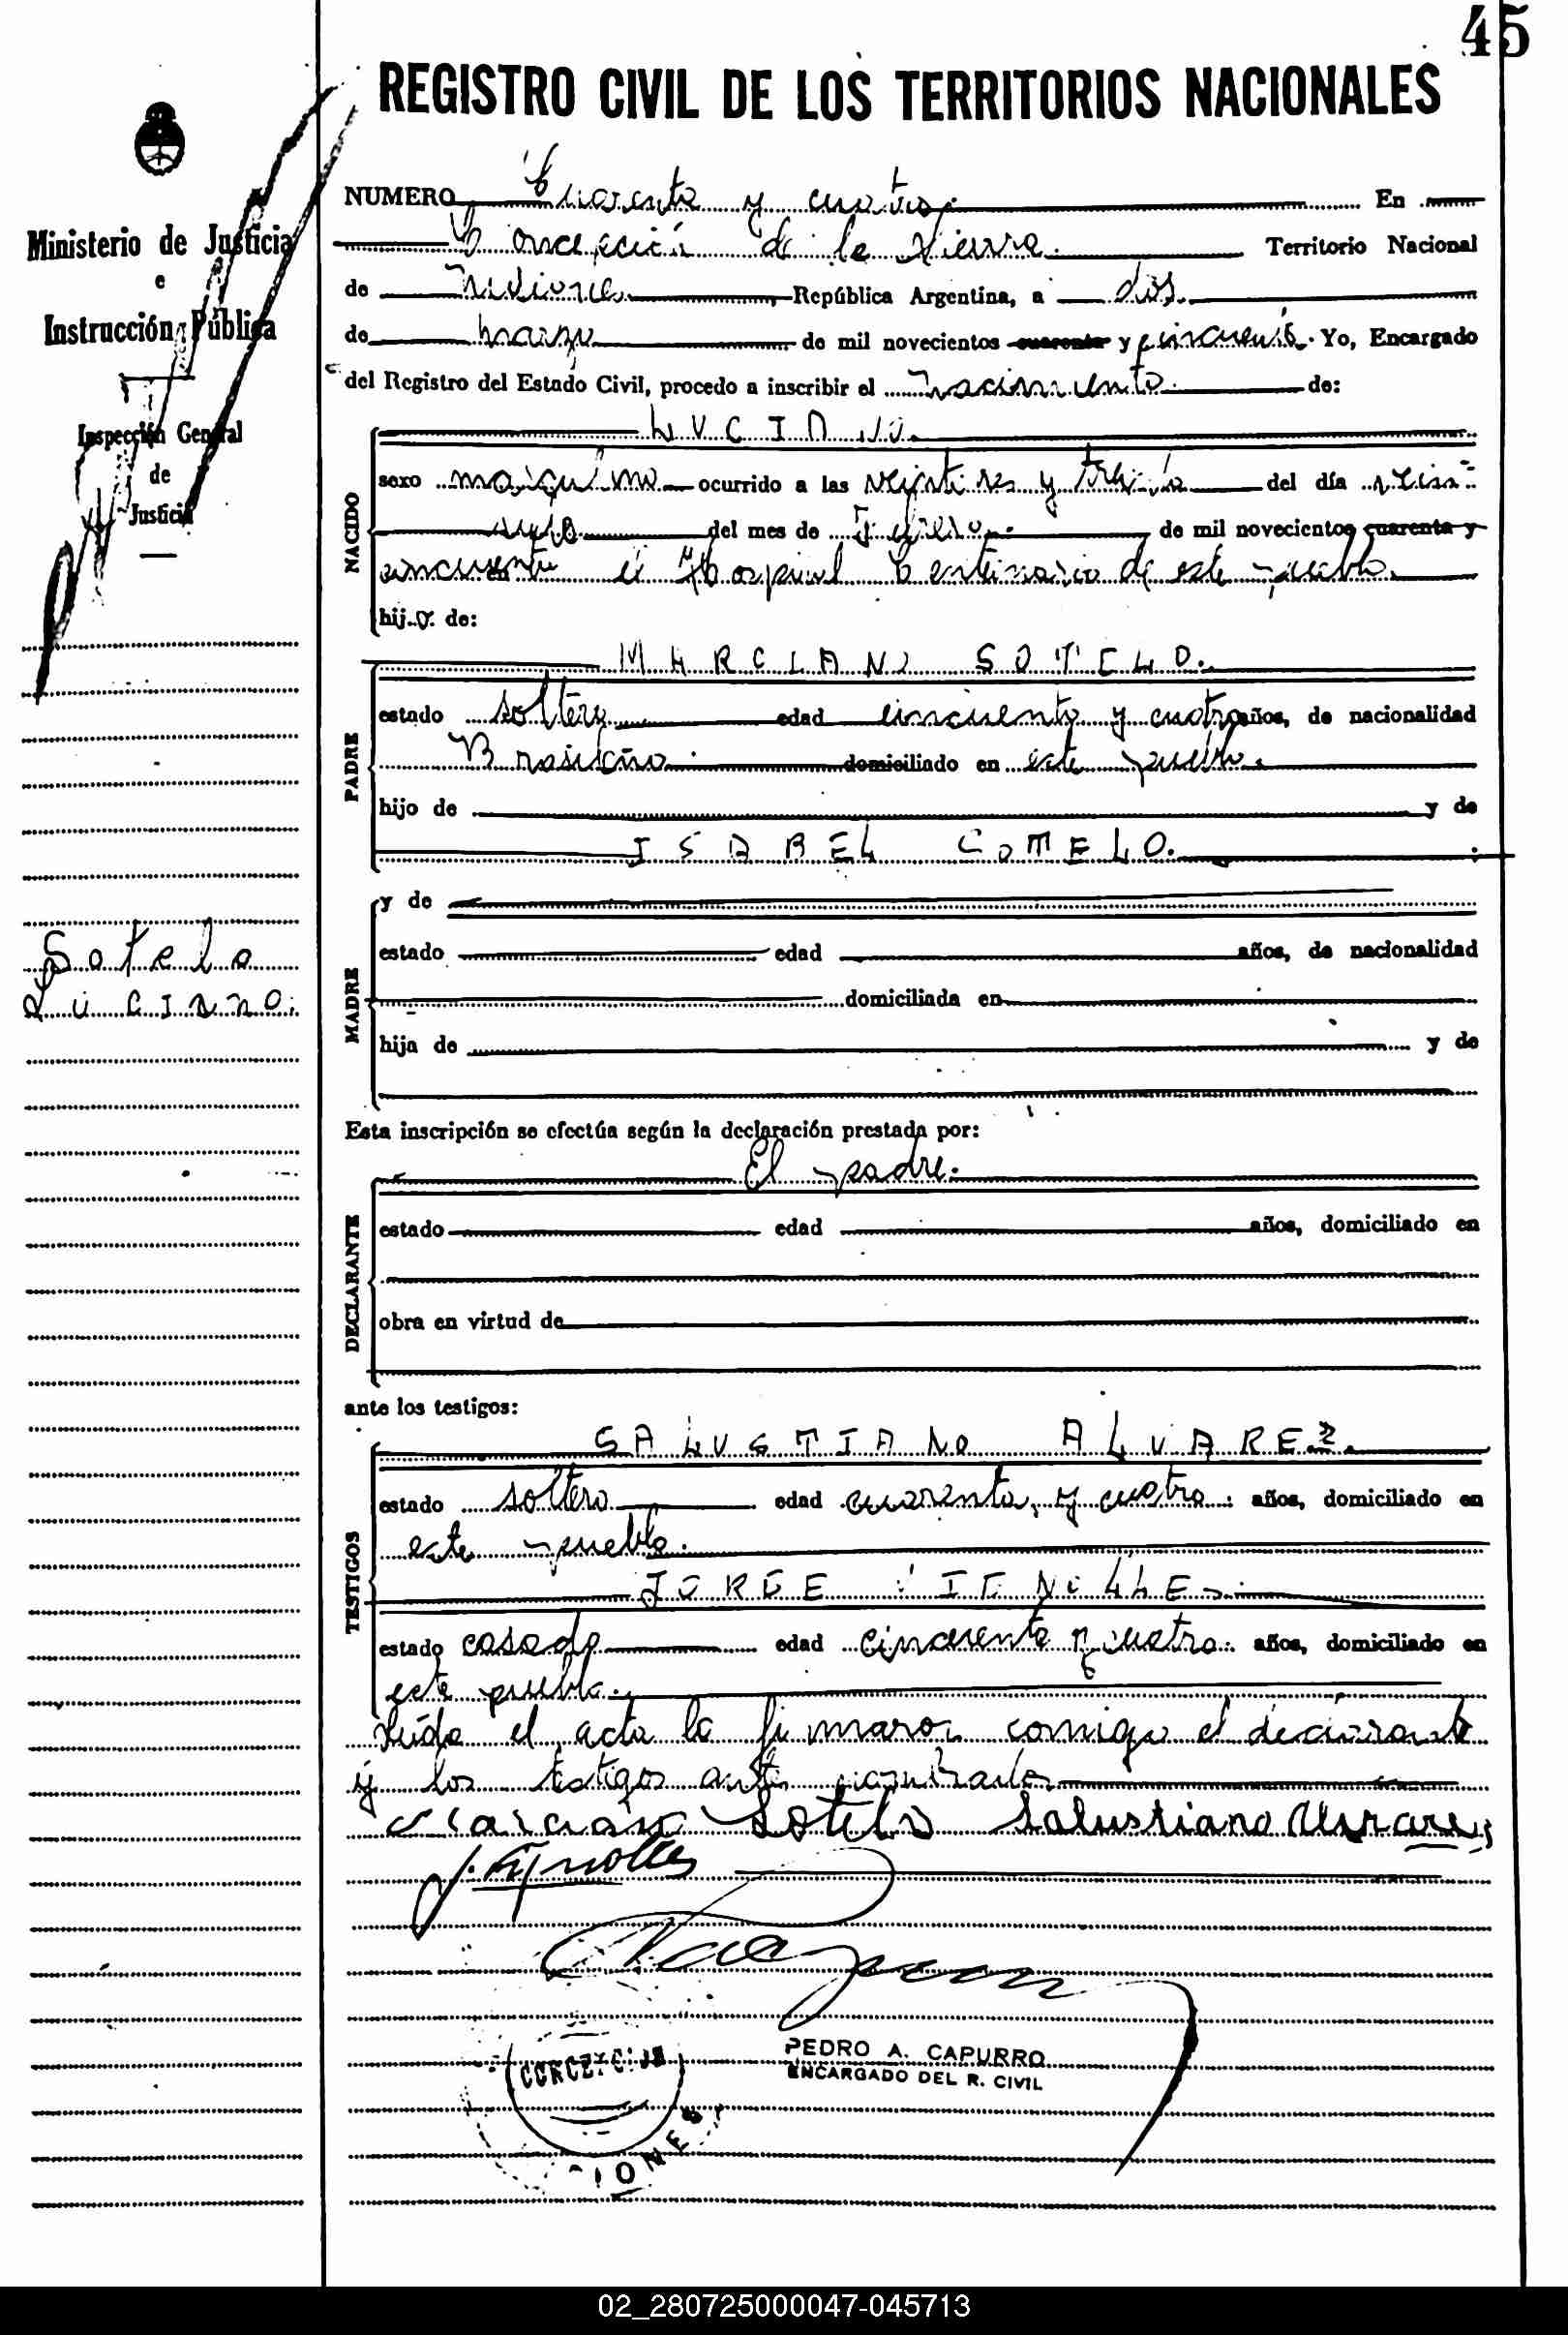 45
REGISTRO CIVIL DE LOS TERRITORIOS NACIONALES
Ministerio de Justicia
e
Instrucción Pública
Inspección General
de
Justicia
Sotelo
Luciano.
NUMERO Cuarenta y cuatro. En
Concepción de la Sierra. Territorio Nacional
de Misiones República Argentina, a dos
de marzo de mil novecientos cuarenta y cincuenta. Yo, Encargado
del Registro del Estado Civil, procedo a inscribir el nacimiento de:
NACIDO
LUCIANO.
sexo masculino ocurrido a las veintitres y treinta del día
del mes de Febrero. de mil novecientos cuarenta y
cincuenta Hospital Centenario de este pueblo.
hijo de:
PADRE
MARCIANO SOTELO.
estado soltero edad cincuenta y cuatro años, de nacionalidad
Brasileño. domiciliado en este pueblo.
hijo de y de
ISABEL COTELO.
MADRE
y de
estado edad años, de nacionalidad
domiciliada en
hija de y de
Esta inscripción se efectúa según la declaración prestada por:
El padre.
DECLARANTE
estado edad años, domiciliado en
obra en virtud de
ante los testigos:
TESTIGOS
SALUSTIANO ALVAREZ.
estado soltero edad cuarenta y cuatro. años, domiciliado en
este pueblo.
JORGE
estado casado edad cincuenta y cuatro. años, domiciliado en
este pueblo.
Leída el acta la firmaron conmigo el declarante
y los testigos antes nombrados
Marciano Sotelo Salustiano Alvarez
PEDRO A. CAPURRO
ENCARGADO DEL R. CIVIL
02_280725000047-045713